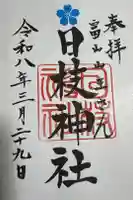 奉拝
富山山王さん
日枝神社
令和八年三月二十九日